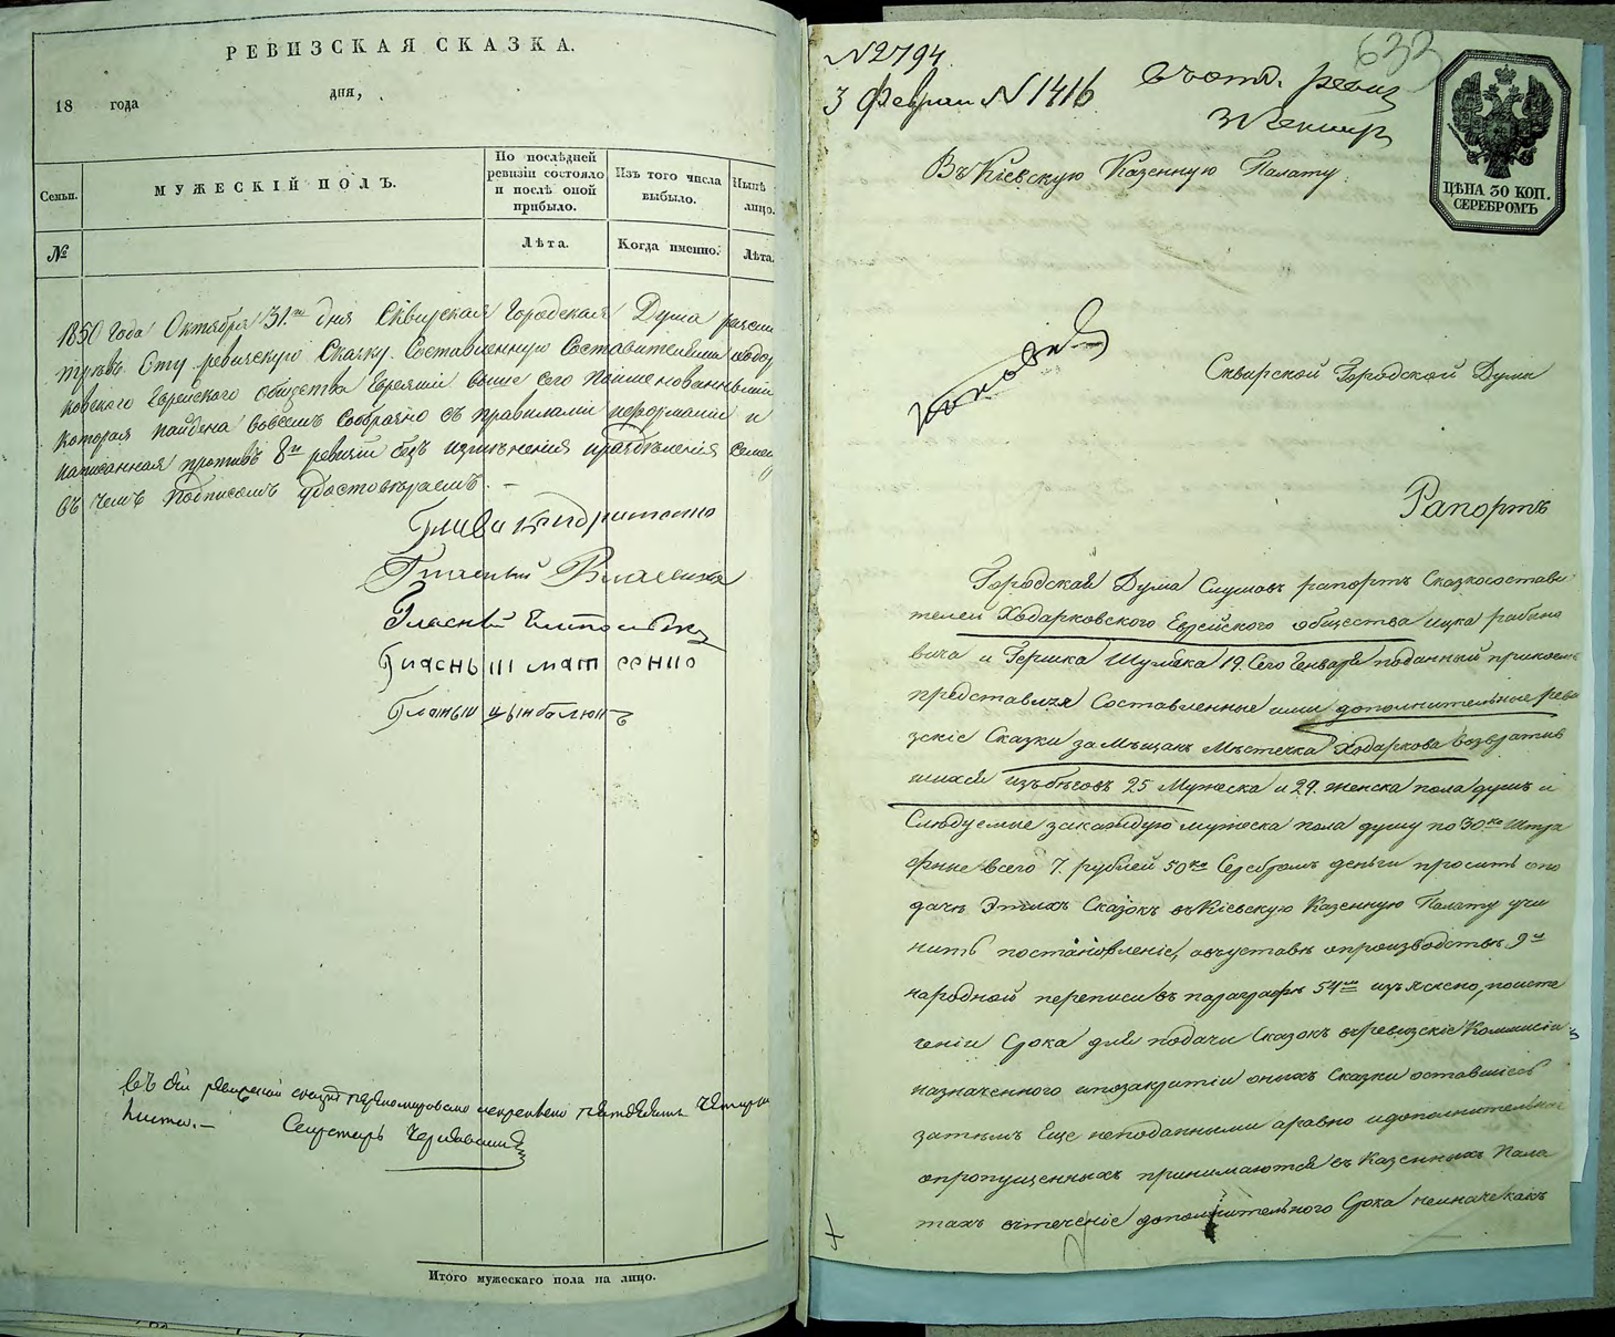 РЕВИЗСКАЯ СКАЗКА.
18 года дня,
Семьи.
МУЖЕСКІЙ ПОЛЪ.
По послѣдней
ревизіи состояло
и послѣ оной
прибыло.
Изъ того числа
выбыло.
Нынѣ
лицо.
№
Лѣта.
Когда именно.
Лѣта.
1850 Года Октября 31го дня Сквирская Городская Дума разсм
трѣвъ Сту ревизскую Сказку Составленную Составителями ходор
ковского Еврейского общества Евреями выше сего поименованными
которая найдена вовсемъ сообразно съ правилами и
написанная противъ 8й ревизіи безъ измѣненія и раздѣленія Семей
въ чемъ подписомъ удостовѣряемъ. —
Глава
Гласный
Гласный
Гласный
Гласный Цымбалютъ
въ сей ревизской сказкѣ пронумеровано четыри
листа. — Секретарь
Итого мужескаго пола на лицо.
N 2794
633
3 Февраля N 1416
Въ отд. ревиз
ЦѢНА 30 КОП.
СЕРЕБРОМЪ
Въ Кіевскую Казенную Палату
Сквирской Городской Думы
Рапортъ
Городская Дума Слушавъ рапортъ Сказкосостави
телей Ходарковского Еврейского общества Ицка рабино
вича и Гершка Шуляка 19. Сего Генваря поданный при коемъ
представляя Составленные ими дополнительные реви
зскіе Сказки за Мѣщанъ Мѣстечка Ходаркова возвратив
шихся изъ бѣговъ 25 Мужеска и 29. женска пола душъ и
Слѣдуемые за каждую мужеска пола душу по 30ко Штра
фные всего 7. рублей 50ко Серебромъ деньги просить о по
дачѣ Этихъ Сказокъ въ Кіевскую Казенную Палату учи
нить постановленіе, а въ уставѣ о производствѣ 9й
народной переписи въ параграфѣ 54мъ изъяснено, по исте
ченіи Срока для подачи Сказокъ въ ревизскіе Коммисіи
назначенного и по закрытіи оныхъ Сказки оставшіесь
затѣмъ Еще неподанными а равно и дополнительные
о пропущенныхъ принимаются въ Казенныхъ Пала
тахъ въ теченіе дополнительного Срока неиначе какъ